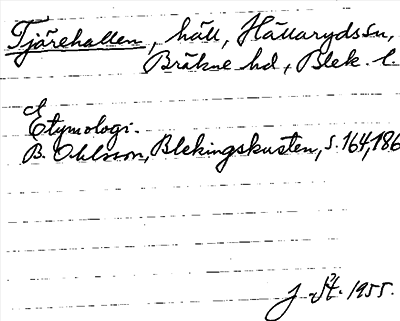 Tjärehallen, häll, Hällaryds sn,
Bräkne hd, Blek. l.
Etymologi.
B. Ohlsson, Blekingskusten, s. 164, 186
J. St. 1955.